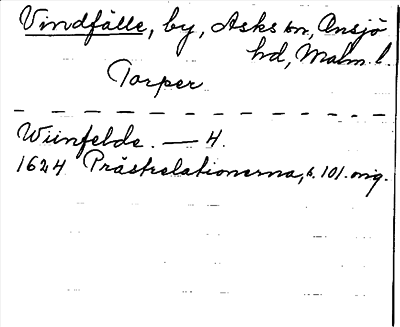 Vindfälle, by, Asks sn, Onsjö
hd, Malm. l.
Torper
Wiinfelde. — 4.
1624 Prästrelationerna, s. 101. orig.